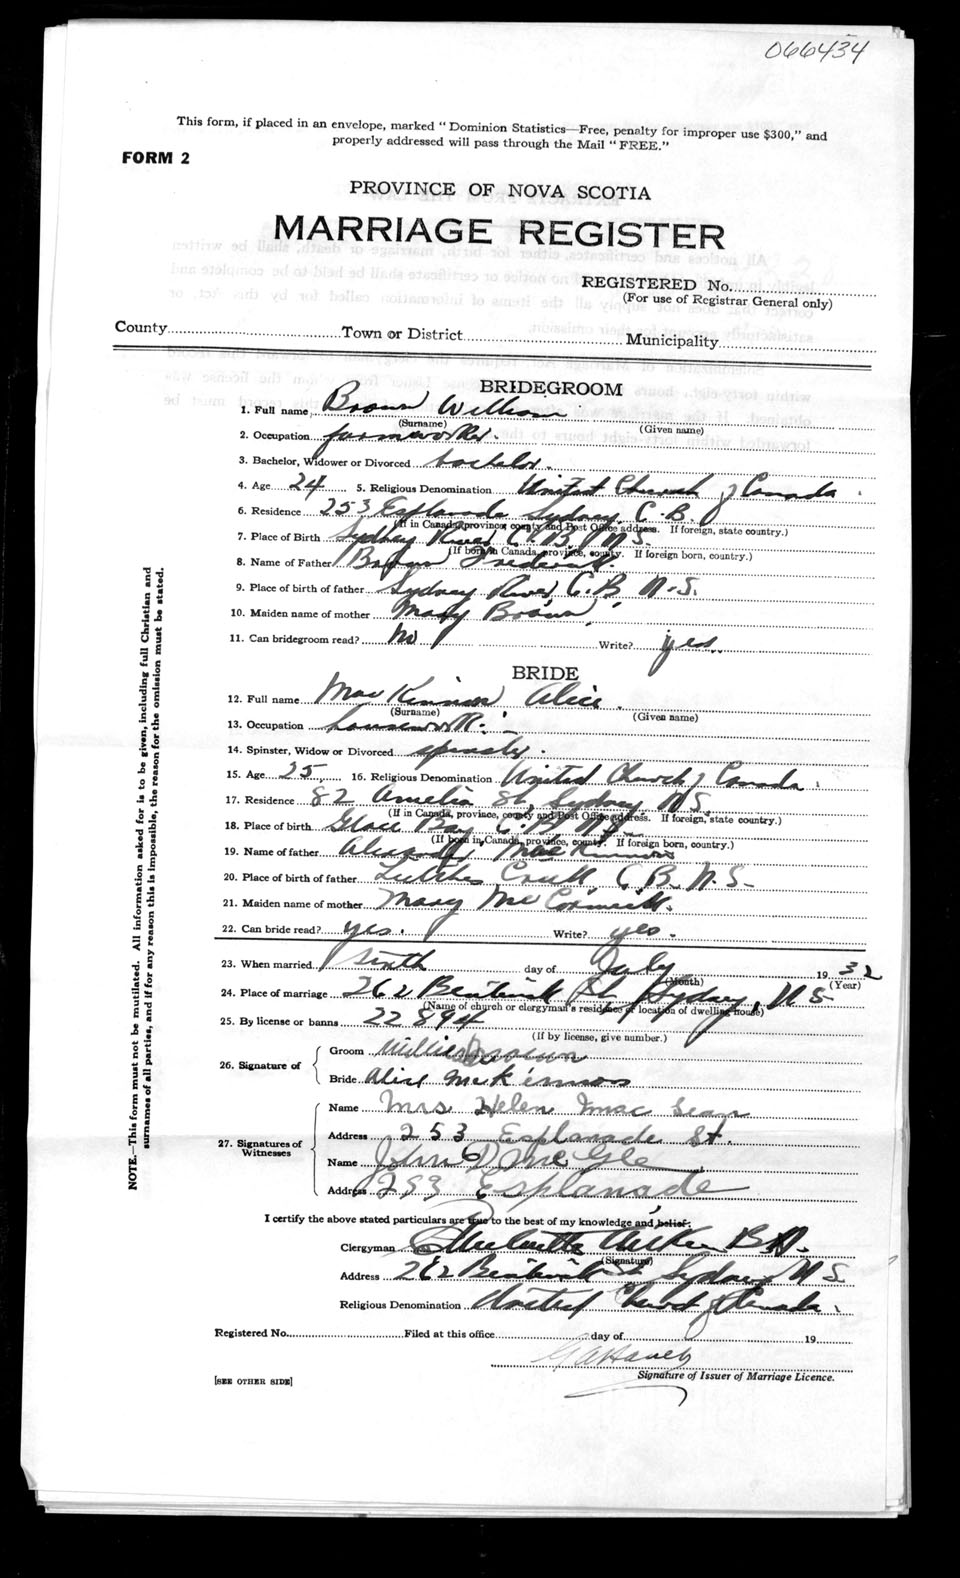 066434
This form, if placed in an envelope, marked "Dominion Statistics—Free, penalty for improper use $300," and
properly addressed will pass through the Mail "FREE."
FORM 2
PROVINCE OF NOVA SCOTIA
MARRIAGE REGISTER
REGISTERED No.
(For use of Registrar General only)
County Town or District Municipality
BRIDEGROOM
1. Full name Brown William
(Surname) (Given name)
2. Occupation farmworker.
3. Bachelor, Widower or Divorced bachelor.
4. Age 24 5. Religious Denomination United Church of Canada
6. Residence 253 Esplanade Sydney C.B
(If in Canada, province, county and Post Office address. If foreign, state country.)
7. Place of Birth Sydney River C.B. N.S.
(If born in Canada, province, county. If foreign born, country.)
8. Name of Father Brown Frederick.
9. Place of birth of father Sydney River C.B N.S.
10. Maiden name of mother Mary Brown
11. Can bridegroom read? No Write? yes.
BRIDE
12. Full name MacKinnon Alice
(Surname) (Given name)
13. Occupation housework.
14. Spinster, Widow or Divorced spinster.
15. Age 25 16. Religious Denomination United Church of Canada
17. Residence 82 Amelia St, Sydney N.S.
(If in Canada, province, county and Post Office address. If foreign, state country.)
18. Place of birth Glace Bay C.B. N.S.
(If born in Canada, province, county. If foreign born, country.)
19. Name of father Alexander MacKinnon
20. Place of birth of father C.B. N.S.
21. Maiden name of mother Mary McCormick.
22. Can bride read? yes. Write? yes.
23. When married sixth day of July 1932
(Month) (Year)
24. Place of marriage 262 Bentinck St, Sydney, N S
(Name of church or clergyman's residence or location of dwelling house)
25. By license or banns 22894
(If by license, give number.)
26. Signature of
Groom Willie Brown
Bride Alice McKinnon
27. Signatures of Witnesses
Name Mrs Helen MacLean
Address 253 Esplanade St.
Name John D
Address 253 Esplanade
I certify the above stated particulars are true to the best of my knowledge and belief:
Clergyman B.A.
(Signature)
Address 262 Bentinck St Sydney N S
Religious Denomination United Church of Canada
Registered No. Filed at this office day of 19
Signature of Issuer of Marriage Licence.
[SEE OTHER SIDE]
NOTE.—This form must not be mutilated. All information asked for is to be given, including full Christian and
surnames of all parties, and if for any reason this is impossible, the reason for the omission must be stated.